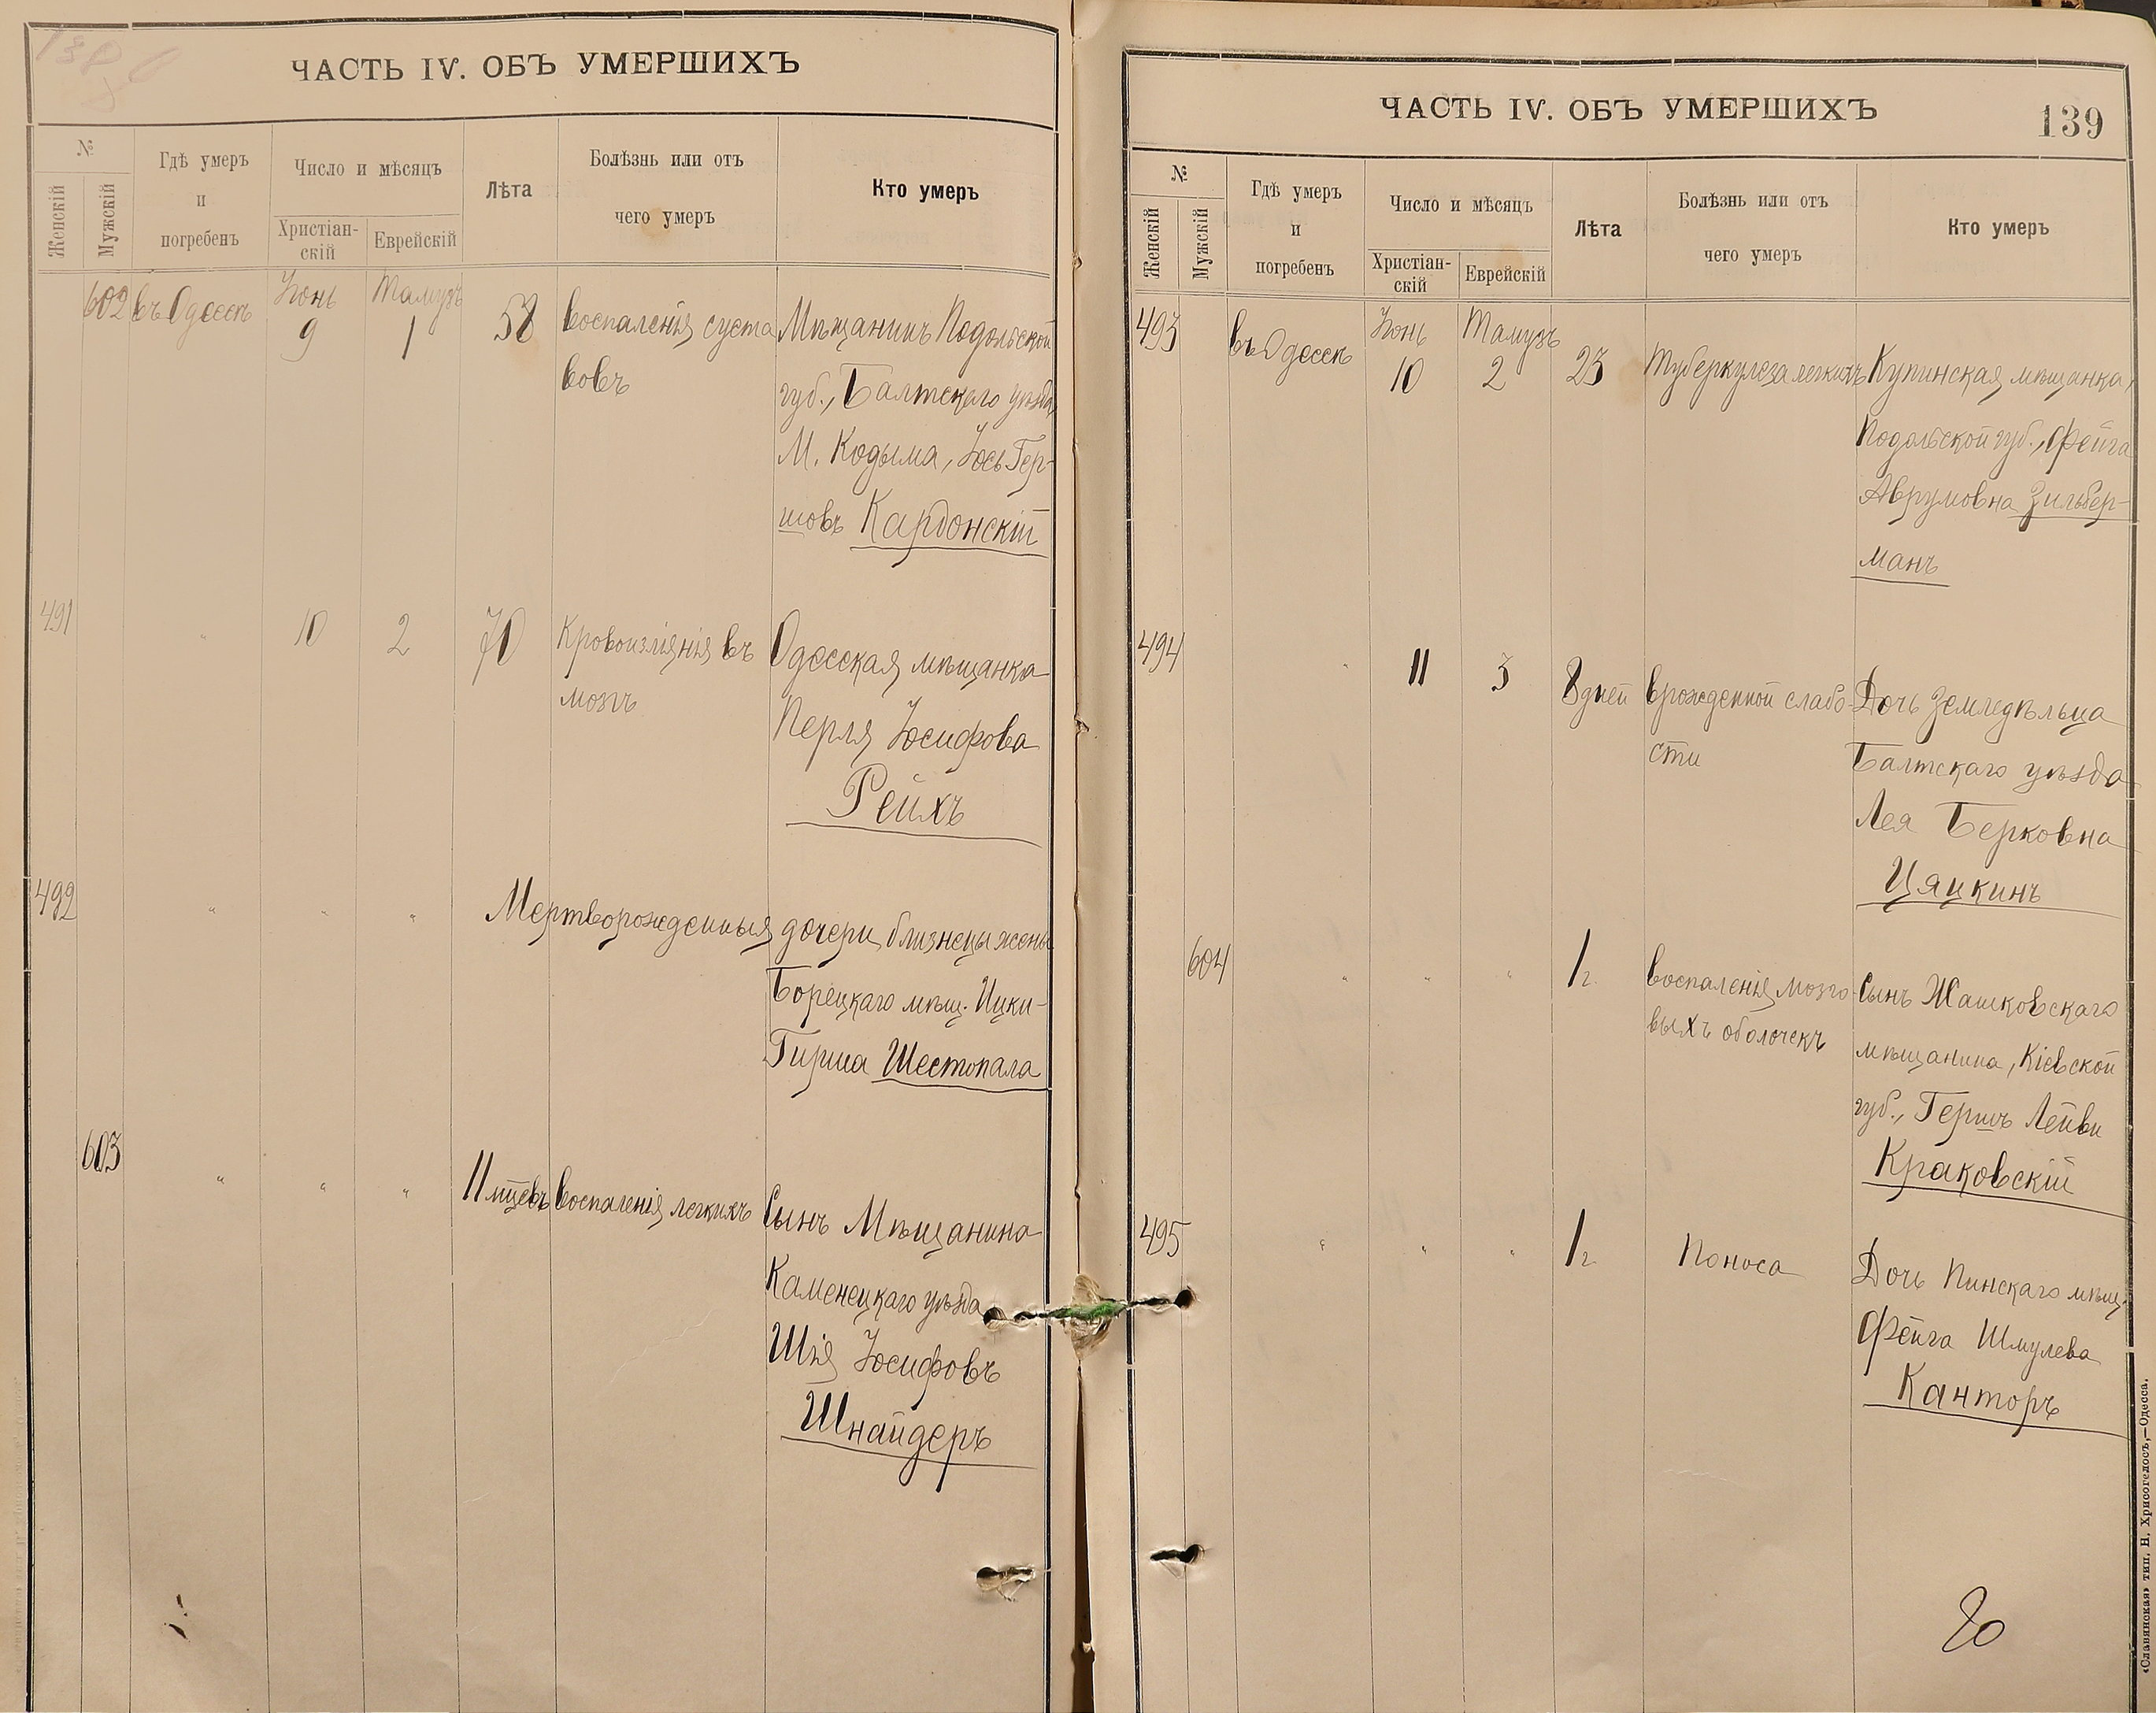 ЧАСТЬ IV. ОБЪ УМЕРШИХЪ
№
Женскій
Мужскій
Гдѣ умеръ
и
погребенъ
Число и мѣсяцъ
Христіан-
скій
Еврейскій
Лѣта
Болѣзнь или отъ
чего умеръ
Кто умеръ
602 въ Одессѣ Іюнь 9 Тамузъ 1 58 воспаленія суста Мѣщанинъ Подольской
вовъ губ., Балтскаго уѣзда,
М. Кодыма, Іось Гер-
шовъ Кардонскій
491 " 10 2 70 Кровоизліянія въ Одесская мѣщанка
мозгъ Перля Іосифова
Рейхъ
492 " " " Мертворожденныя дочери, близнецы жены
Борецкаго мѣщ. Ицки-
Гирша Шестопала
603 " " " 11 мцевъ воспаленія легкихъ Сынъ Мѣщанина
Каменецкаго уѣзда
Шія Іосифовъ
Шнайдеръ
ЧАСТЬ IV. ОБЪ УМЕРШИХЪ
139
№
Женскій
Мужскій
Гдѣ умеръ
и
погребенъ
Число и мѣсяцъ
Христіан-
скій
Еврейскій
Лѣта
Болѣзнь или отъ
чего умеръ
Кто умеръ
493 въ Одессѣ Іюнь 10 Тамузъ 2 23 Туберкулеза легкихъ Купинская мѣщанка,
Подольской губ., Фейга
Аврумовна Зильбер-
манъ
494 " 11 3 8 дней врожденной слабо- Дочь Земледѣльца
сти Балтскаго уѣзда
Лея Берковна
Цяцкинъ
604 " " " 1 г. воспаленія мозго- Сынъ Жашковскаго
выхъ оболочекъ мѣщанина, Кіевской
губ., Гершъ Лейви
Краковскій
495 " " " 1 г. Поноса Дочь Пинскаго мѣщ.
Фейга Шмулева
Канторъ
«Славянская» тип. Н. Хрисогелосъ,—Одесса.